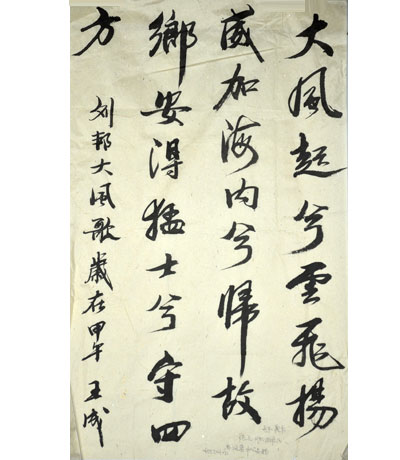 大風起兮雲飛揚
威加海内兮歸故
鄉安得猛士兮守四
方
刘邦大风歌歲在甲午王成